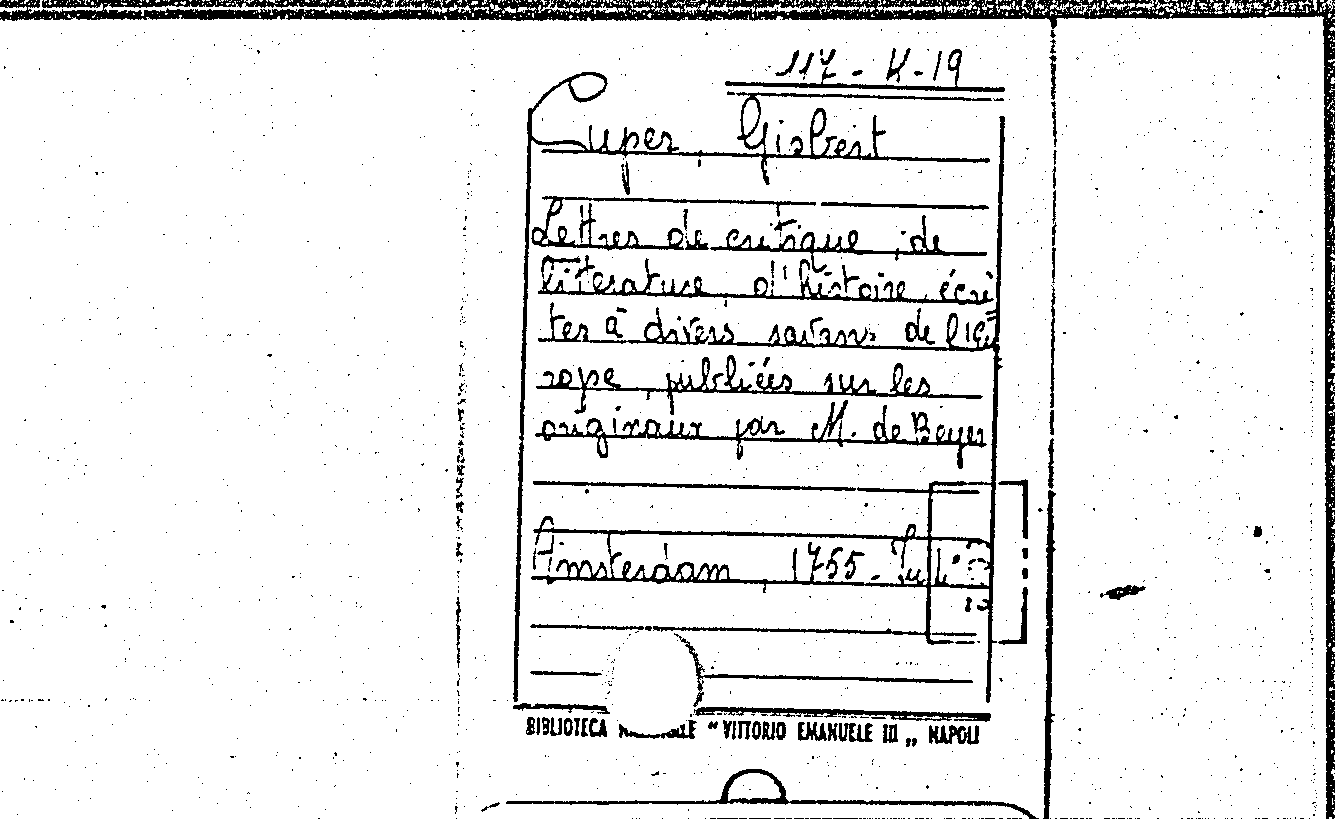 117 - K - 19
Cuper, Gisbert
Lettres de critique, de
litterature, d'histoire, écri
tes à divers savans de l'Eu
rope, publiées sur les
originaux par M. de Beyer
Amsterdam, 1755.
BIBLIOTECA "VITTORIO EMANUELE III„ NAPOLI